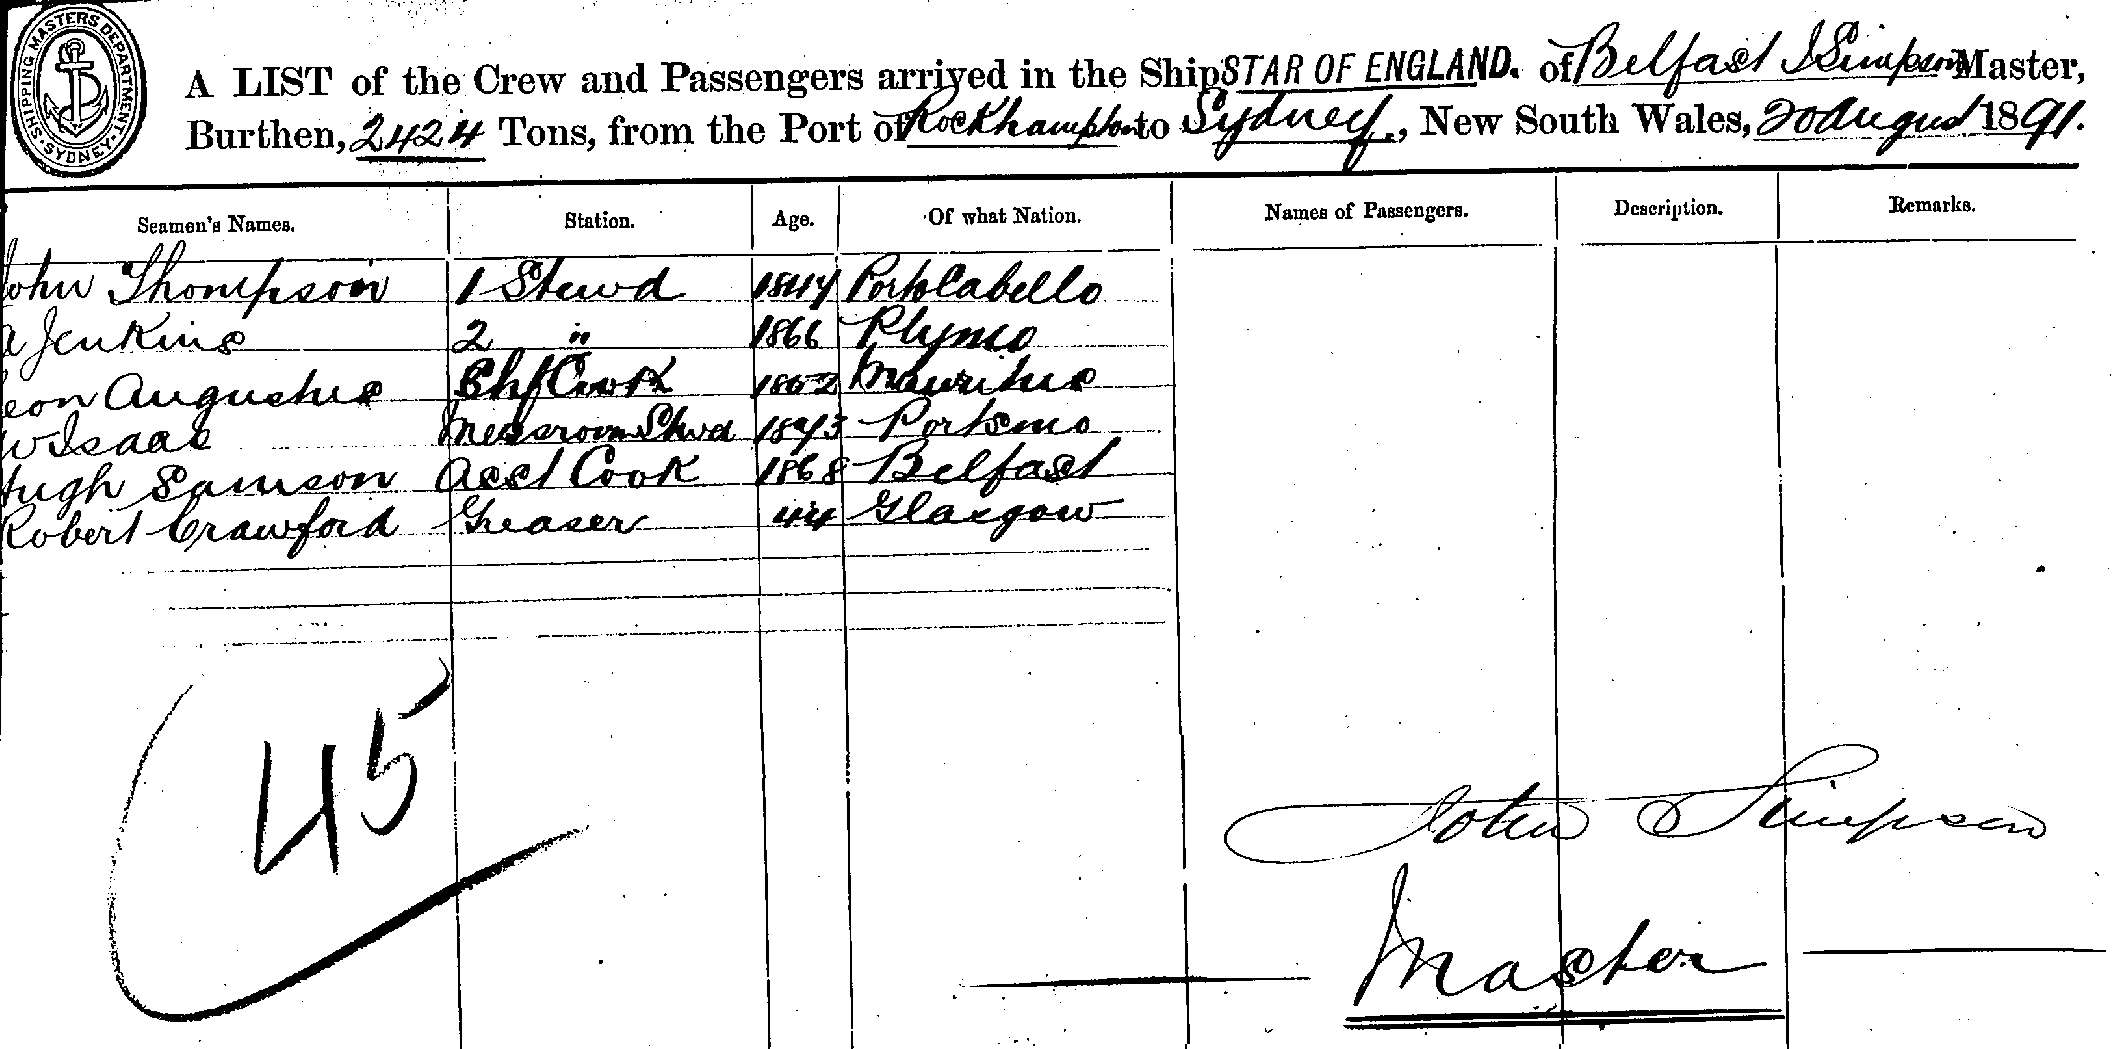 SHIPPING MASTERS DEPARTMENT. SYDNEY.
A LIST of the Crew and Passengers arrived in the Ship STAR OF ENGLAND. of Belfast J Simpson Master,
Burthen, 2424 Tons, from the Port of Rockhampton to Sydney, New South Wales, 20 August 1891.
Seamen's Names. Station. Age. Of what Nation. Names of Passengers. Description. Remarks.
John Thompson 1 Stewd 1844 Porto Cabello
Jenkins 2 " 1866 Plymo
Leon Augustus Chf Cook 1852 Mauritius
W Isaac Messroom Stwd 1873 Portsmo
Hugh Samson Asst Cook 1868 Belfast
Robert Crawford Greaser 44 Glasgow
45
John Simpson
Master